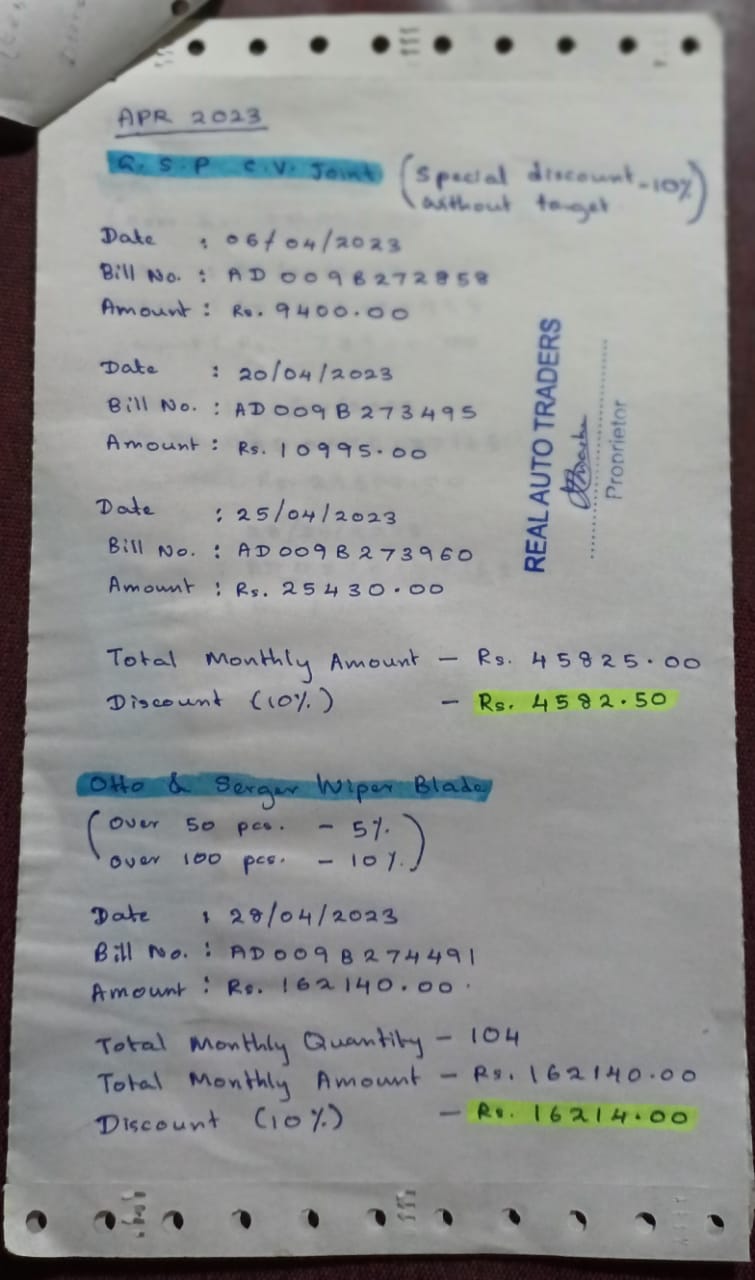 APR 2023
G.S.P C.V. Joint (Special discount -10%
without target)
Date : 06/04/2023
Bill No. : AD009B272858
Amount : Rs. 9400.00
Date : 20/04/2023
Bill No. : AD009B273495
Amount : Rs. 10995.00
REAL AUTO TRADERS
Proprietor
Date : 25/04/2023
Bill No. : AD009B273960
Amount : Rs. 25430.00
Total Monthly Amount - Rs. 45825.00
Discount (10%) - Rs. 4582.50
Otto & Serger Wiper Blade
(over 50 pcs. - 5%
over 100 pcs. - 10%)
Date : 28/04/2023
Bill No. : AD009B274491
Amount : Rs. 162140.00
Total Monthly Quantity - 104
Total Monthly Amount - Rs. 162140.00
Discount (10%) - Rs. 16214.00